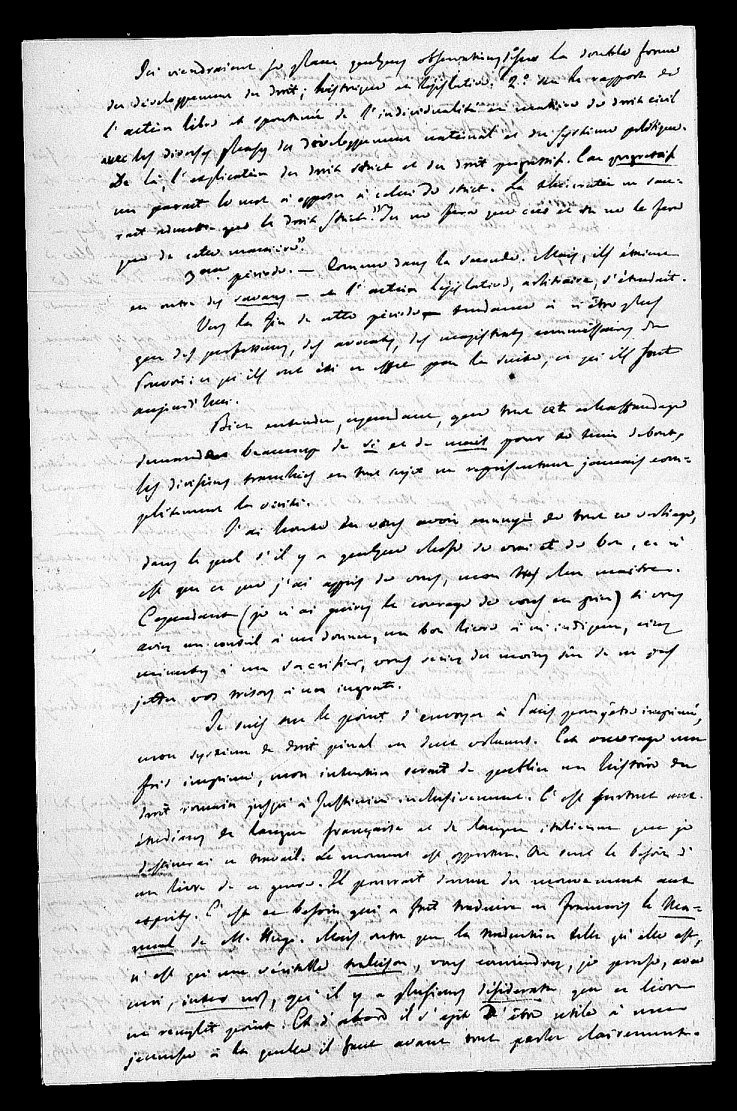 Ici viendraient se placer quelques observations 1° sur la double forme
du développement du droit, historique et législative. 2° sur le rapport de
l'action libre et spontanée de l'individualité en matière de droit civil
avec les diverses phases du développement national et du système politique.
De là, l'explication du droit strict et du droit progressif. Car progressif
me paraît le mot à opposer à celui de strict. La
que le droit strict "Tu ne feras que ceci et tu ne le feras
que de cette manière".
3eme période. — Comme dans la seconde. Mais, ils étaient
en outre des savans — et l'action législative, solitaire, s'étendait.
Vers la fin de cette période tendance à n'être plus
que des professeurs, des avocats, des magistrats commissaires du
Pouvoir: ce qu'ils ont été en effet par la suite, ce qu'ils sont
aujourd'hui.
Bien entendu, cependant, que tout cet échaffaudage
demande beaucoup de si et de mais pour se tenir debout,
les divisions tranchées en tout sujet ne représentant jamais com-
plètement la vérité.
J'ai honte de vous avoir ennuyé de tout ce verbiage,
dans lequel s'il y a quelque chose de vrai et de bon, ce n'
est que ce que j'ai appris de vous, mon très cher maître.
Cependant (je n'ai guères le courage de vous en prier) si vous
avez un conseil à me donner, un bon livre à m'indiquer, cinq
minutes à me sacrifier, vous seriez du moins sûr de ne pas
jetter vos trésors à un ingrat.
Je suis sur le point d'envoyer à Paris pour y être imprimé,
mon système de droit pénal en deux volumes. Cet ouvrage une
fois imprimé, mon intention serait de publier une histoire du
droit romain jusqu'à Justinien inclusivement. C'est surtout aux
étudians de langue française et de langue italienne que je
destinerai ce travail. Le moment est opportun. On sent le besoin d'
un livre de ce genre. Il pourrait donner du mouvement aux
esprits. C'est ce besoin qui a fait traduire en Français le Ma-
nuel de M. Hugo. Mais, outre que la traduction telle qu'elle est,
n'est qu'une véritable trahison, vous conviendrez, je pense, avec
moi, inter nos, qu'il y a plusieurs desiderata que ce livre
ne remplit point. Et d'abord il s'agit d'être utile à une
jeunesse à la quelle il faut avant tout parler clairement.